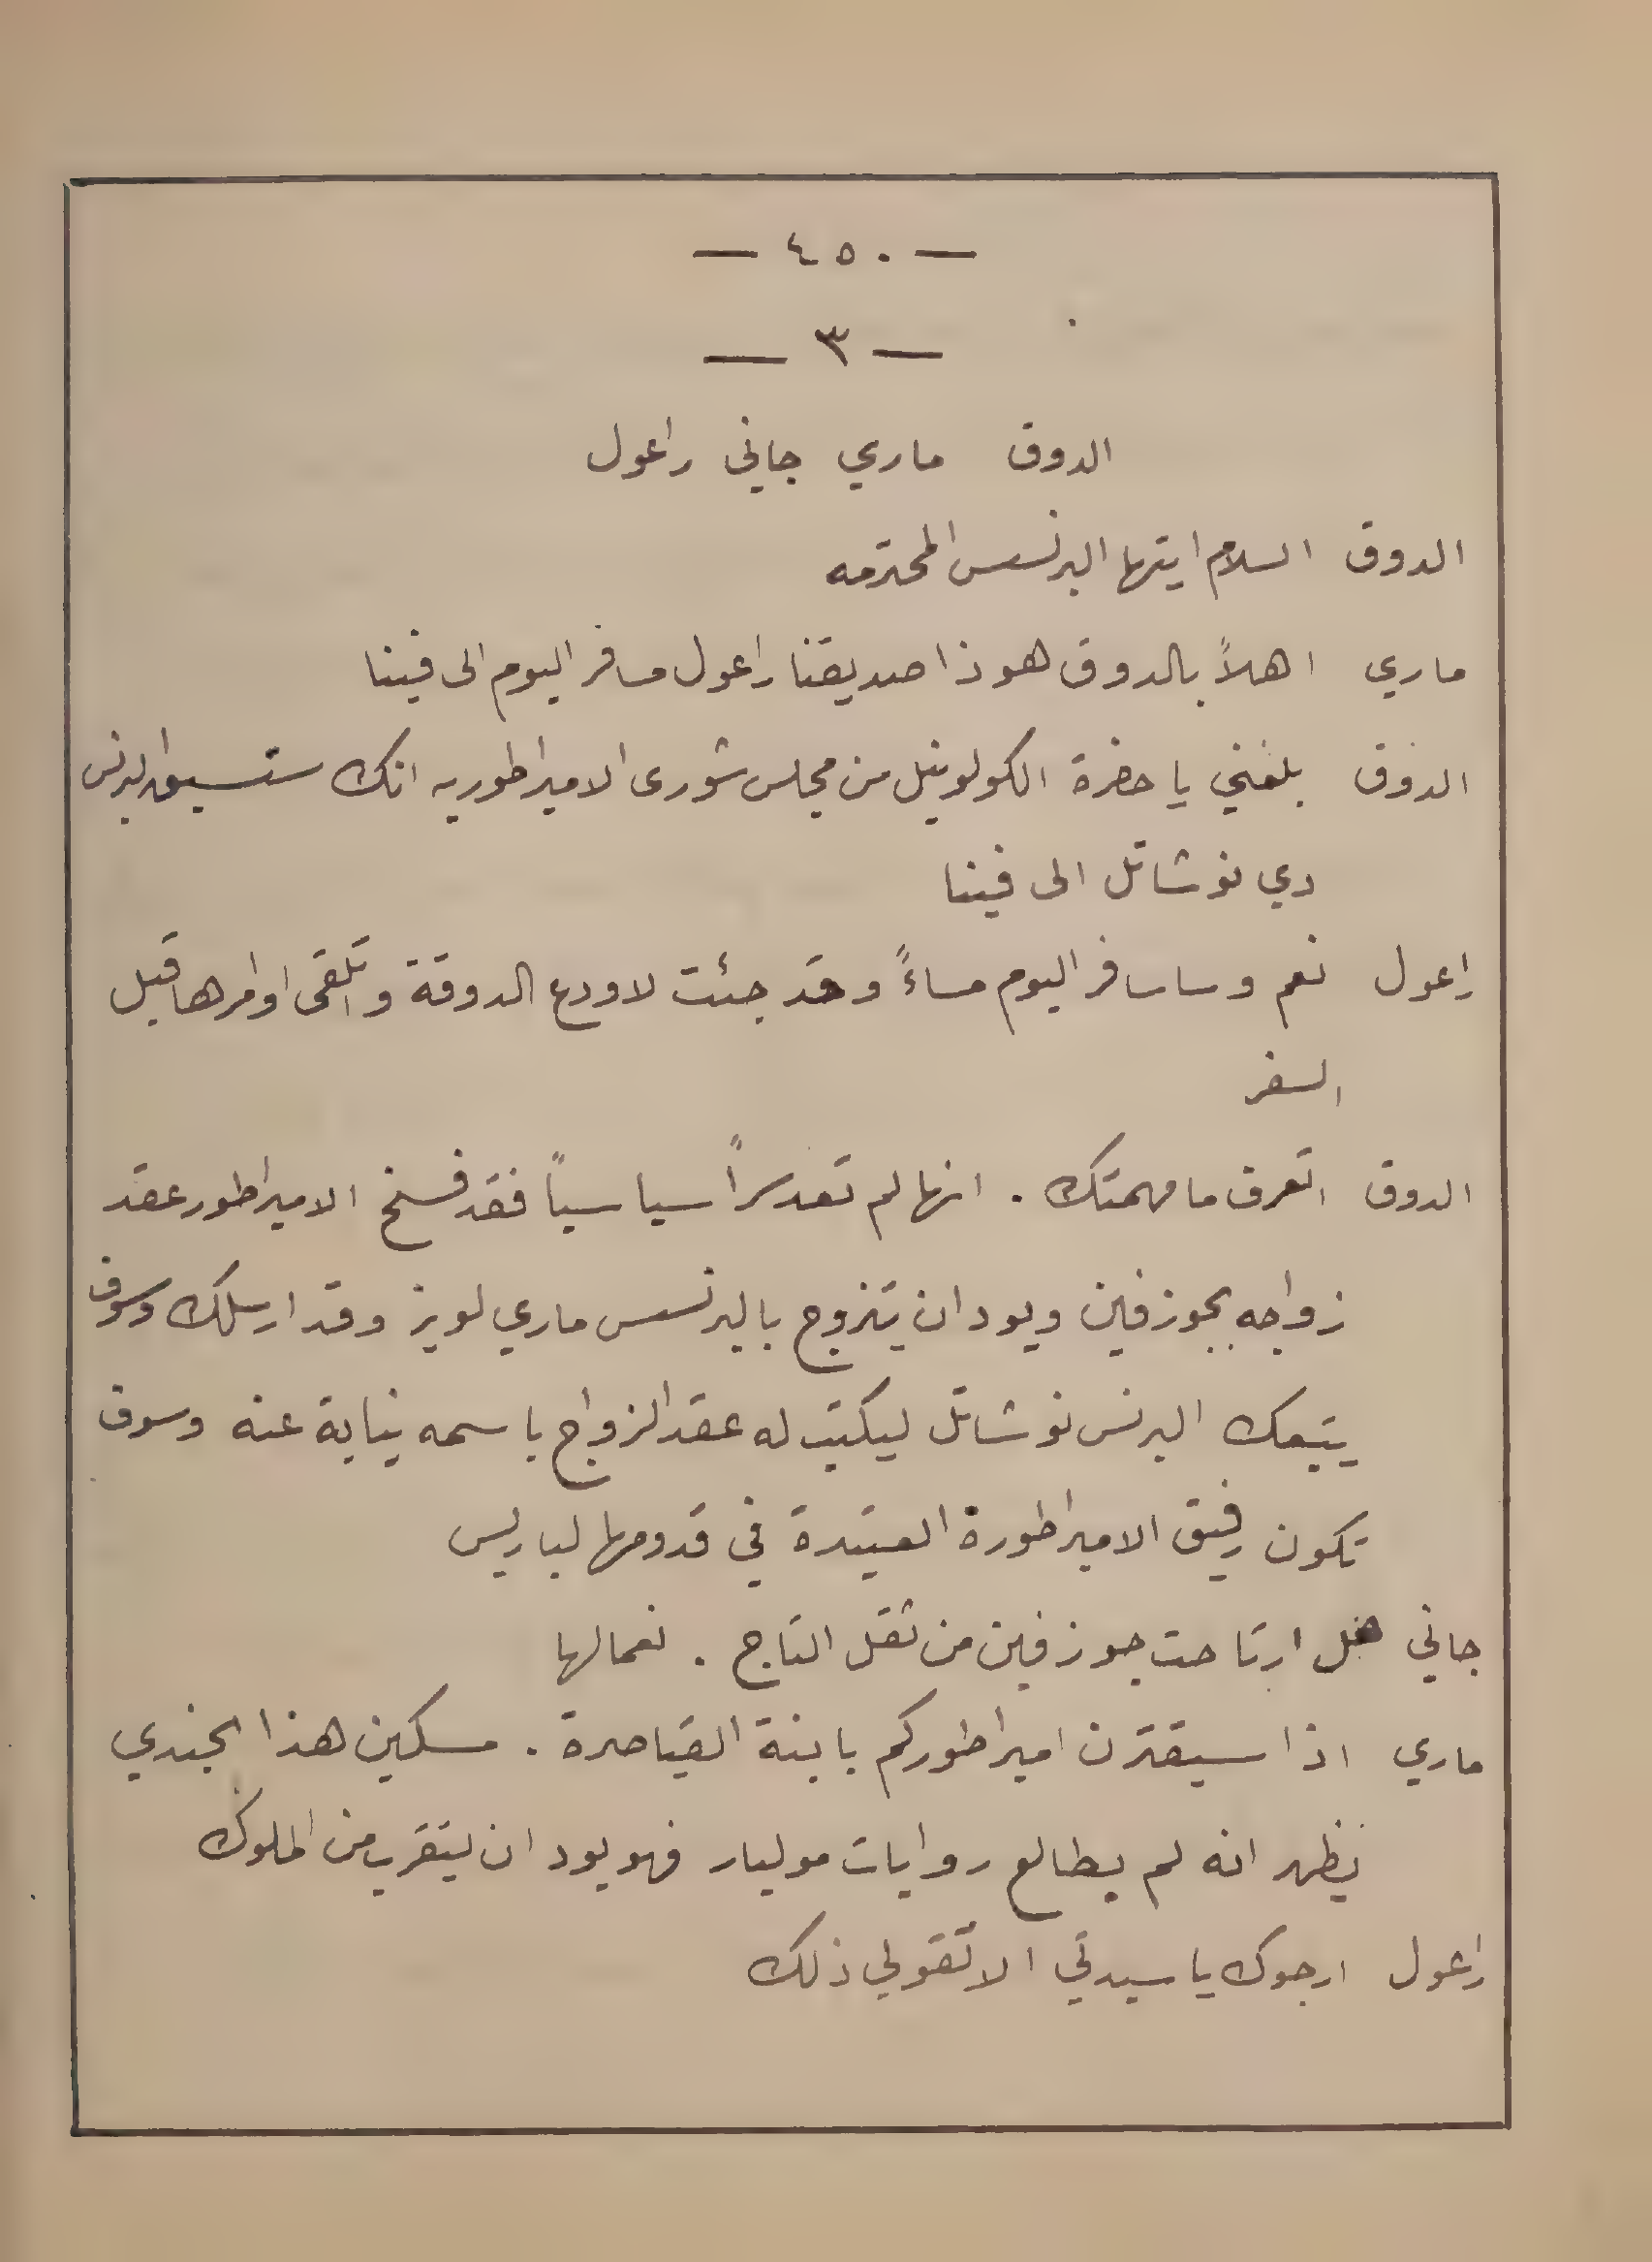 — ٤٥٠ —
— ٣ —
الدوق ماري جاني راعول
الدوق السلام ايتها البرنسس المحترمه
ماري اهلاً بالدوق هوذا صديقنا راعول مسافر اليوم الى فينا
الدوق بلغني يا حضرة الكولونيل من مجلس شورى الامبراطوريه انك ستسبق البرنس
دي نوشاتل الى فينا
راعول نعم وساسافر اليوم مساءً وقد جئت لاودع الدوقة واتلقى اوامرها قبل
السفر
الدوق اتعرف ما مهمتك . انها لم تعد سراً سياسياً فقد فسخ الامبراطور عقد
زواجه بجوزفين ويود ان يتزوج بالبرنسس ماري لويز وقد ارسلك وسوف
يتبعك البرنس نوشاتل ليكتب له عقد الزواج باسمه نيابة عنه وسوف
تكون رفيق الامبراطورة العتيدة في قدومها لباريس
جاني هل ارتاحت جوزفين من ثقل التاج . نعمالها
ماري اذا سيقترن امبراطوركم بابنة القياصرة . مسكين هذا الجندي
يظهر انه لم يطالع روايات موليار فهو يود ان يتقرب من الملوك
راعول ارجوك يا سيدتي الا تقولي ذلك